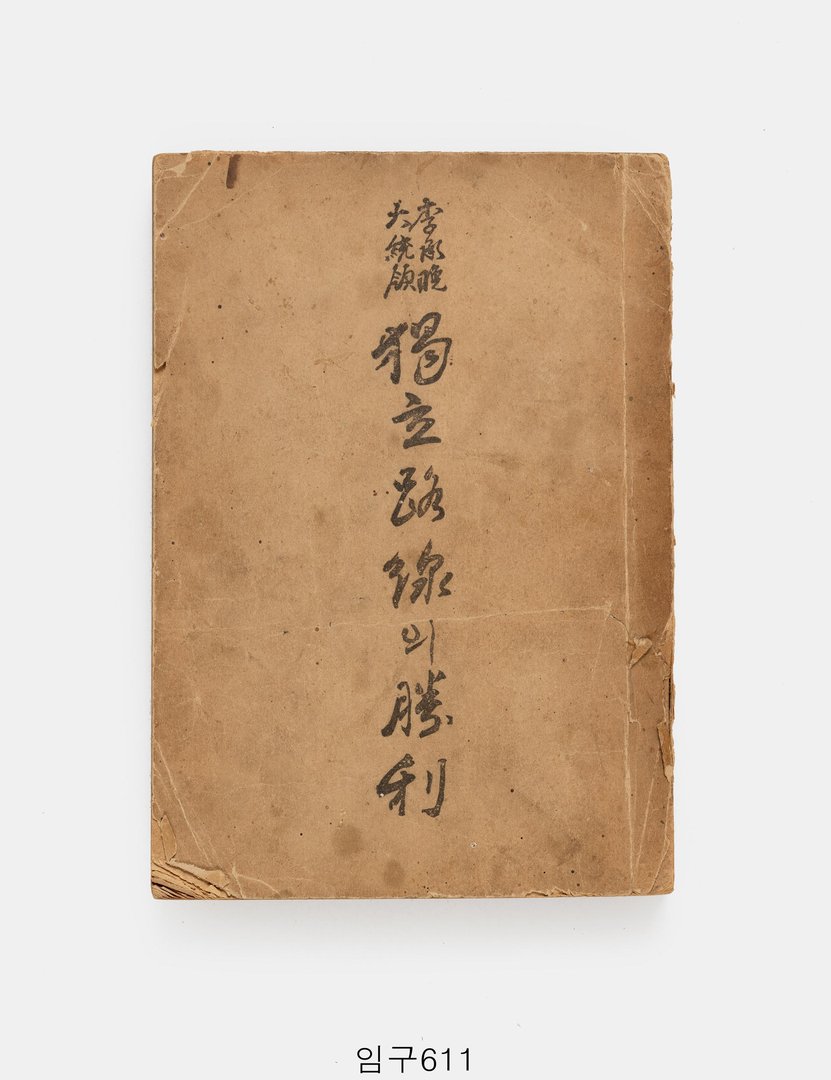 李承晩
大統領
獨立路線의勝利
임구611